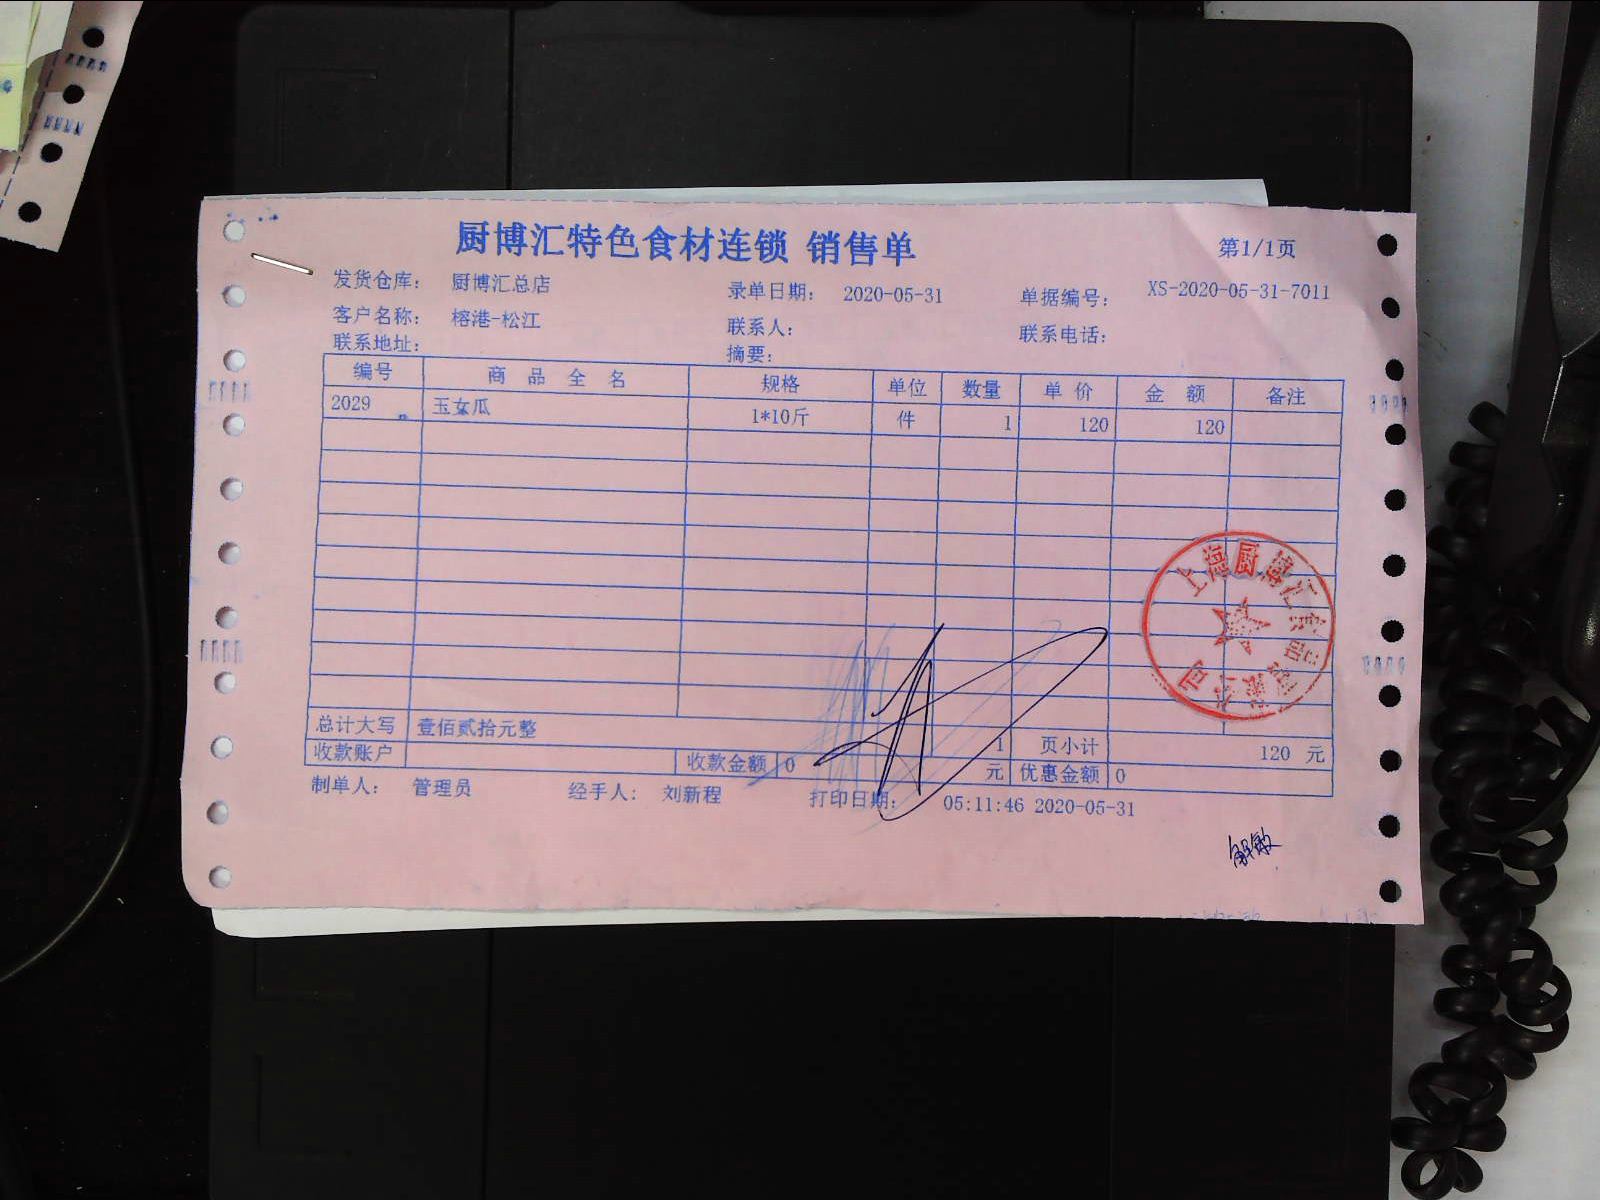 厨博汇特色食材连锁 销售单
第1/1页
发货仓库： 厨博汇总店 录单日期： 2020-05-31 单据编号： XS-2020-05-31-7011
客户名称： 榕港-松江 联系人： 联系电话：
联系地址： 摘要：
编号 商 品 全 名 规格 单位 数量 单 价 金 额 备注
2029 玉女瓜 1*10斤 件 1 120 120
上海厨博汇食品有限公司
总计大写 壹佰贰拾元整 1 页小计 120 元
收款账户 收款金额 0 元 优惠金额 0
制单人： 管理员 经手人： 刘新程 打印日期： 05:11:46 2020-05-31